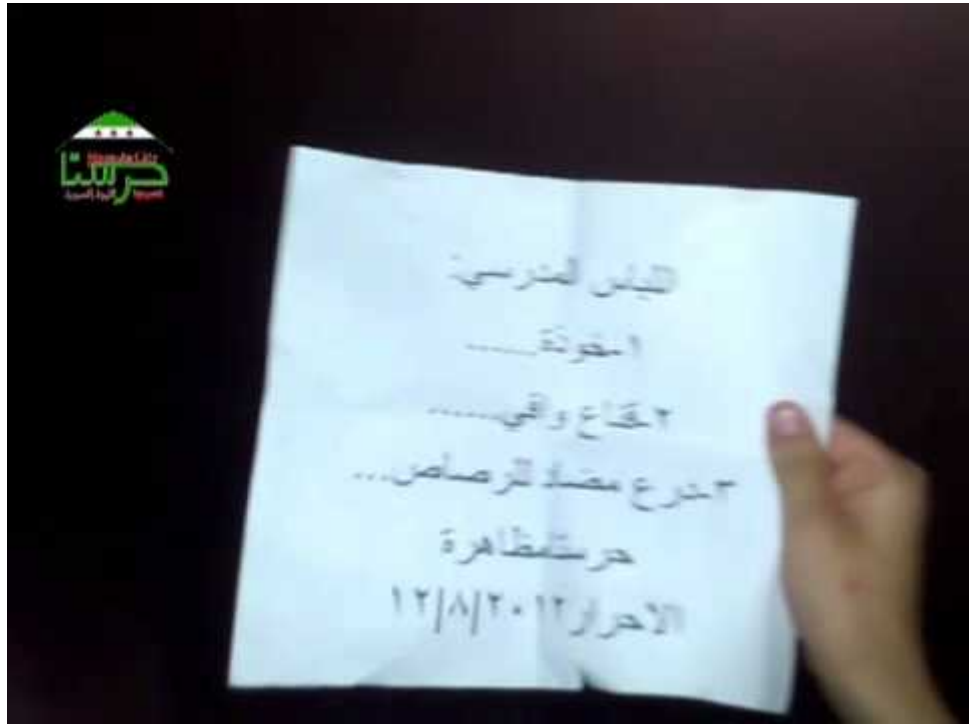 حرستا
اللباس المدرسي:
١-خوذة.....
٢-قناع واقي......
٣-درع مضاد للرصاص...
حرستامظاهرة
الاحرار١٢/٨/٢٠١٢